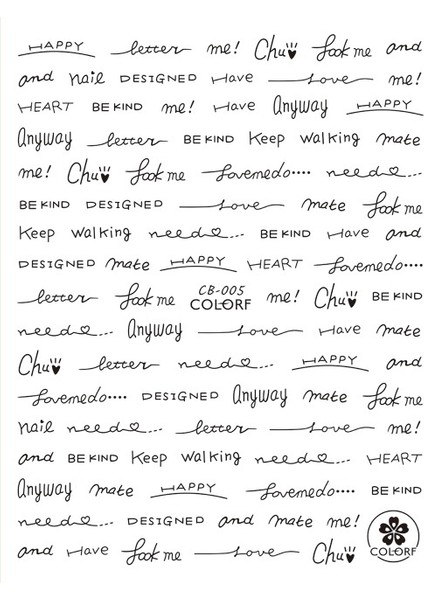 HAPPY letter me! Chu look me and
and nail DESIGNED Have Love me!
HEART BE KIND me! Have Anyway HAPPY
Anyway letter BE KIND Keep walking mate
me! Chu look me Lovemedo···· need...
BE KIND DESIGNED Love mate look me
Keep walking need... BE KIND Have and
DESIGNED mate HAPPY HEART Lovemedo····
letter look me CB-005 COLORF me! Chu BE KIND
need... Anyway Love Have mate
Chu letter need... HAPPY and
Lovemedo···· DESIGNED Anyway mate look me
nail need... letter Love me!
and BE KIND Keep walking need... HEART
Anyway mate HAPPY Lovemedo···· BE KIND
need... DESIGNED and mate me!
and Have look me Love Chu COLORF